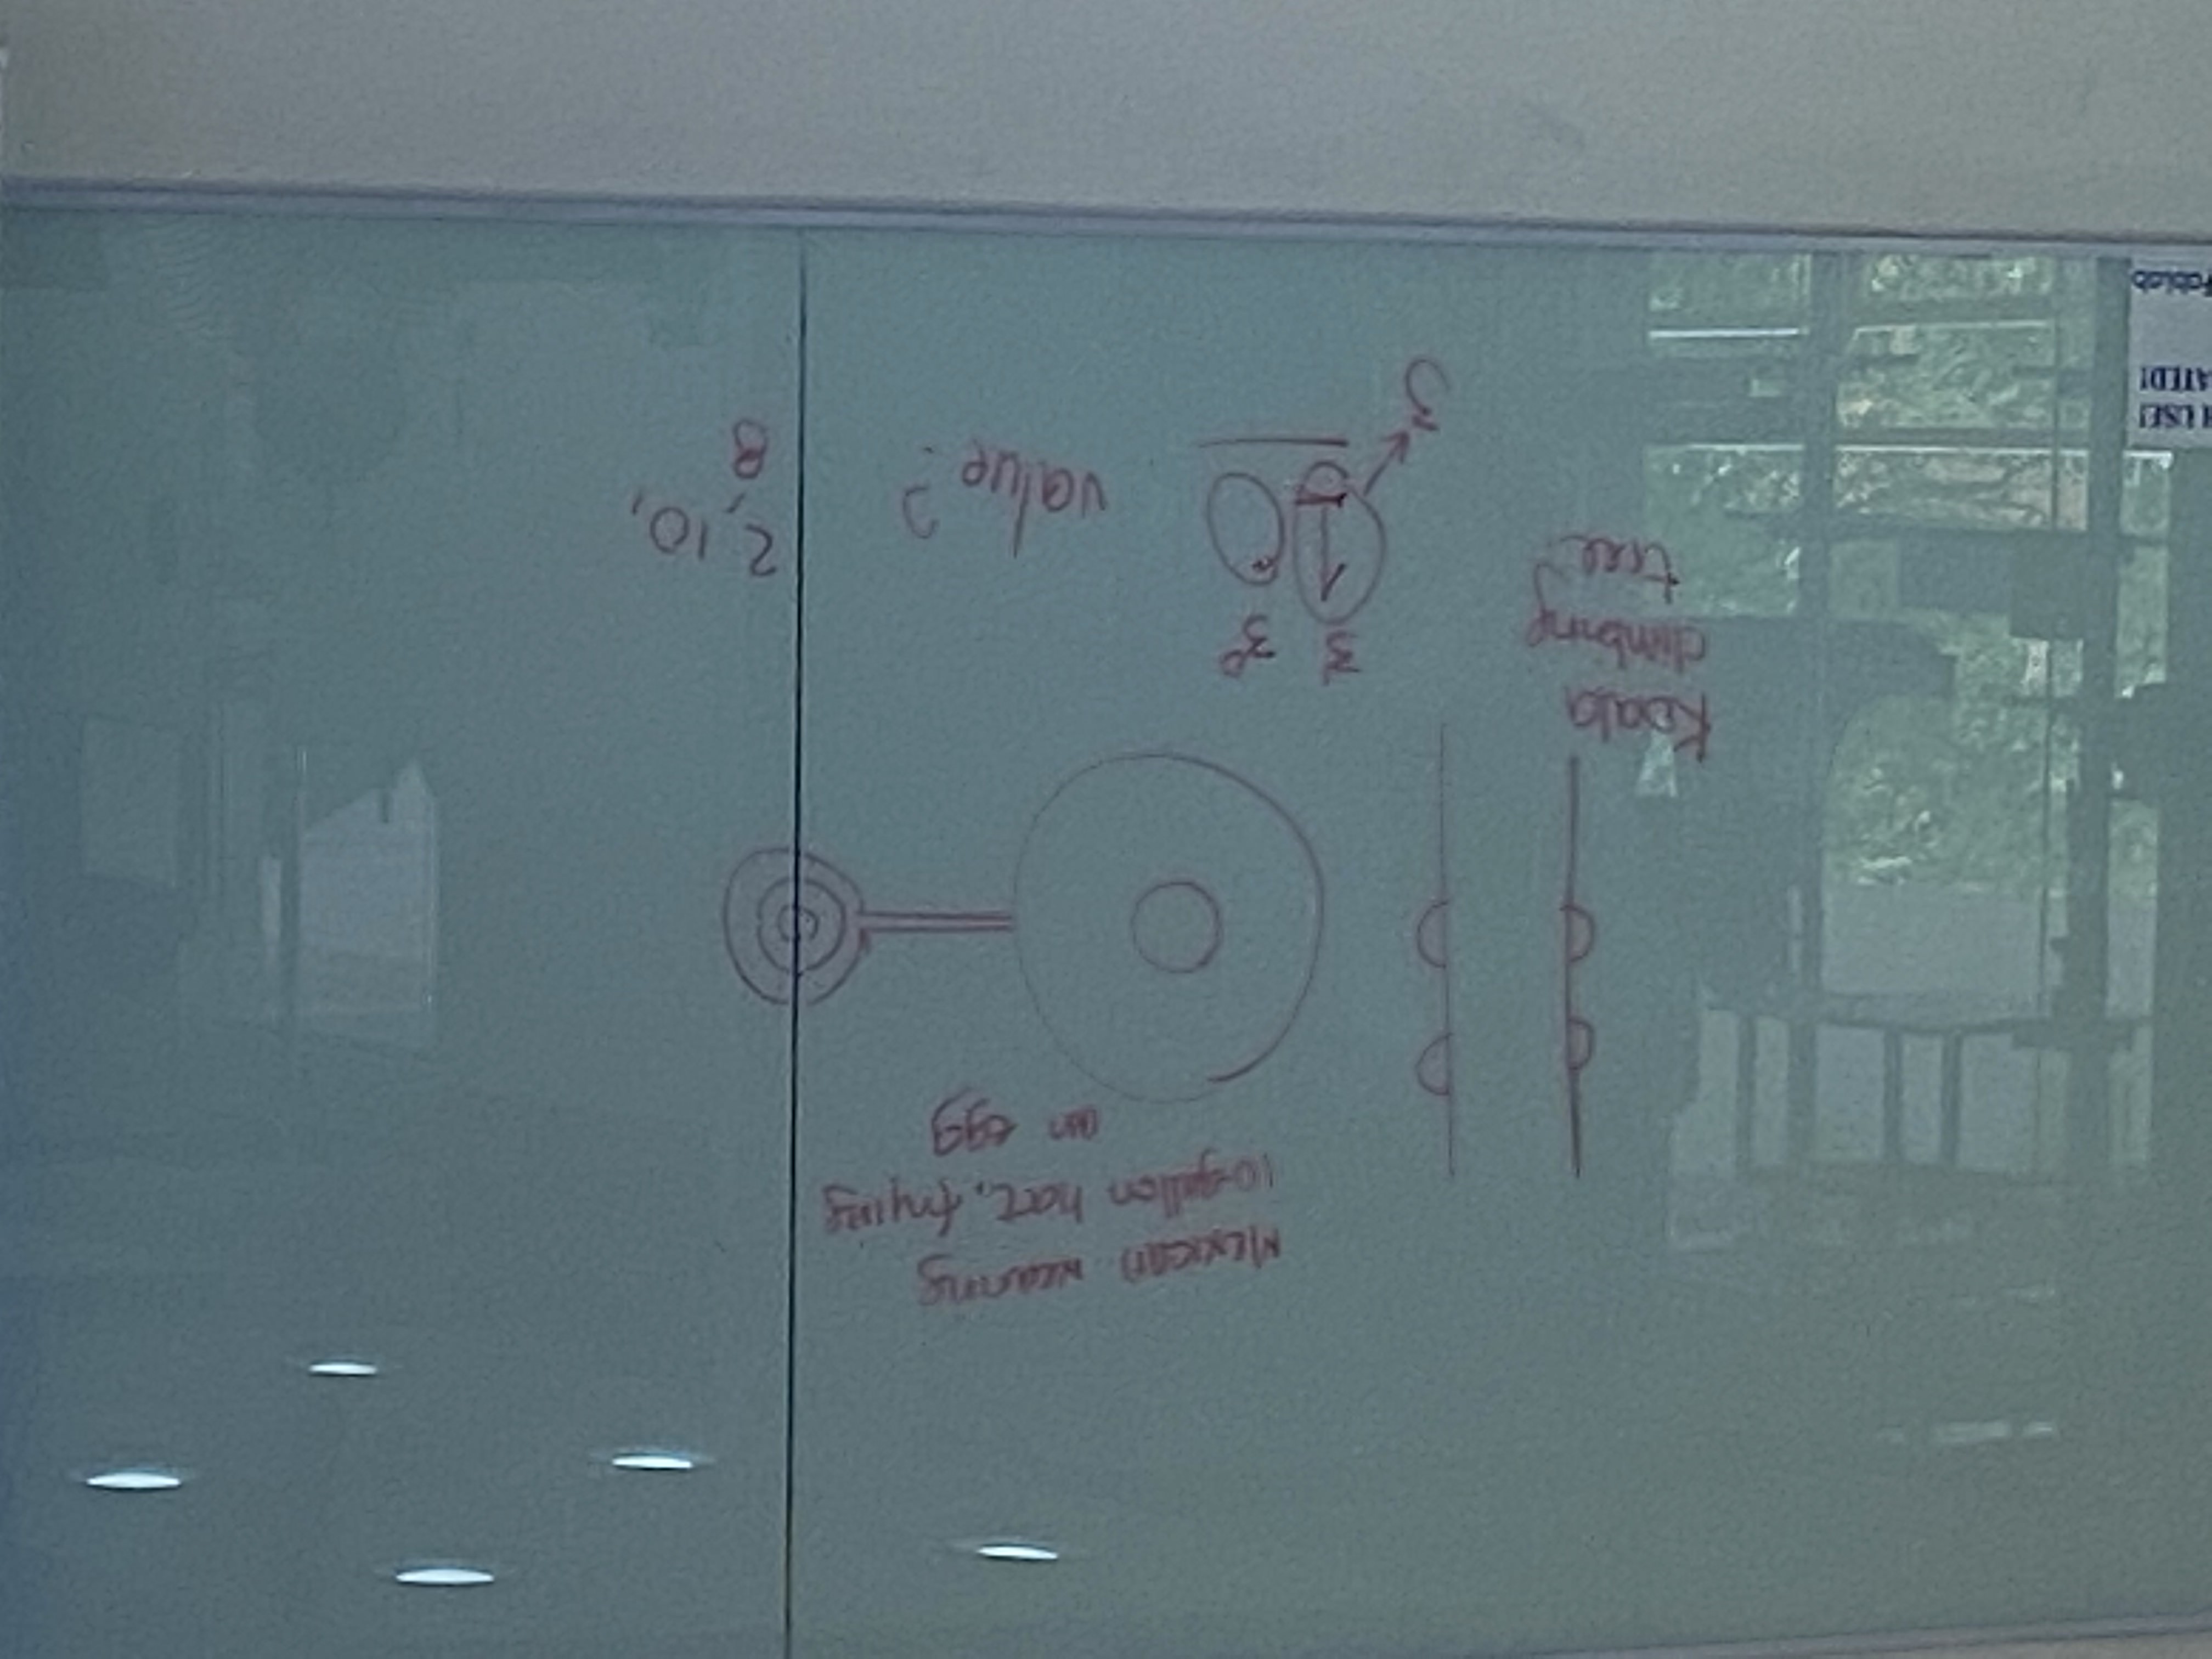 Mexican wearing
10-gallon hat, frying
an egg
Koala
climbing
tree
3¹ 3⁰
1 0
value?
2, 10,
8
USE!
ATED!
FabLab